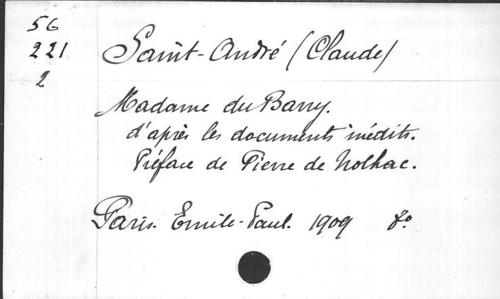 56
221
2
Saint-André (Claude)
Madame du Barry.
d'après les documents inédits.
Préface de Pierre de Nolhac.
Paris. Emile-Paul. 1909 8o